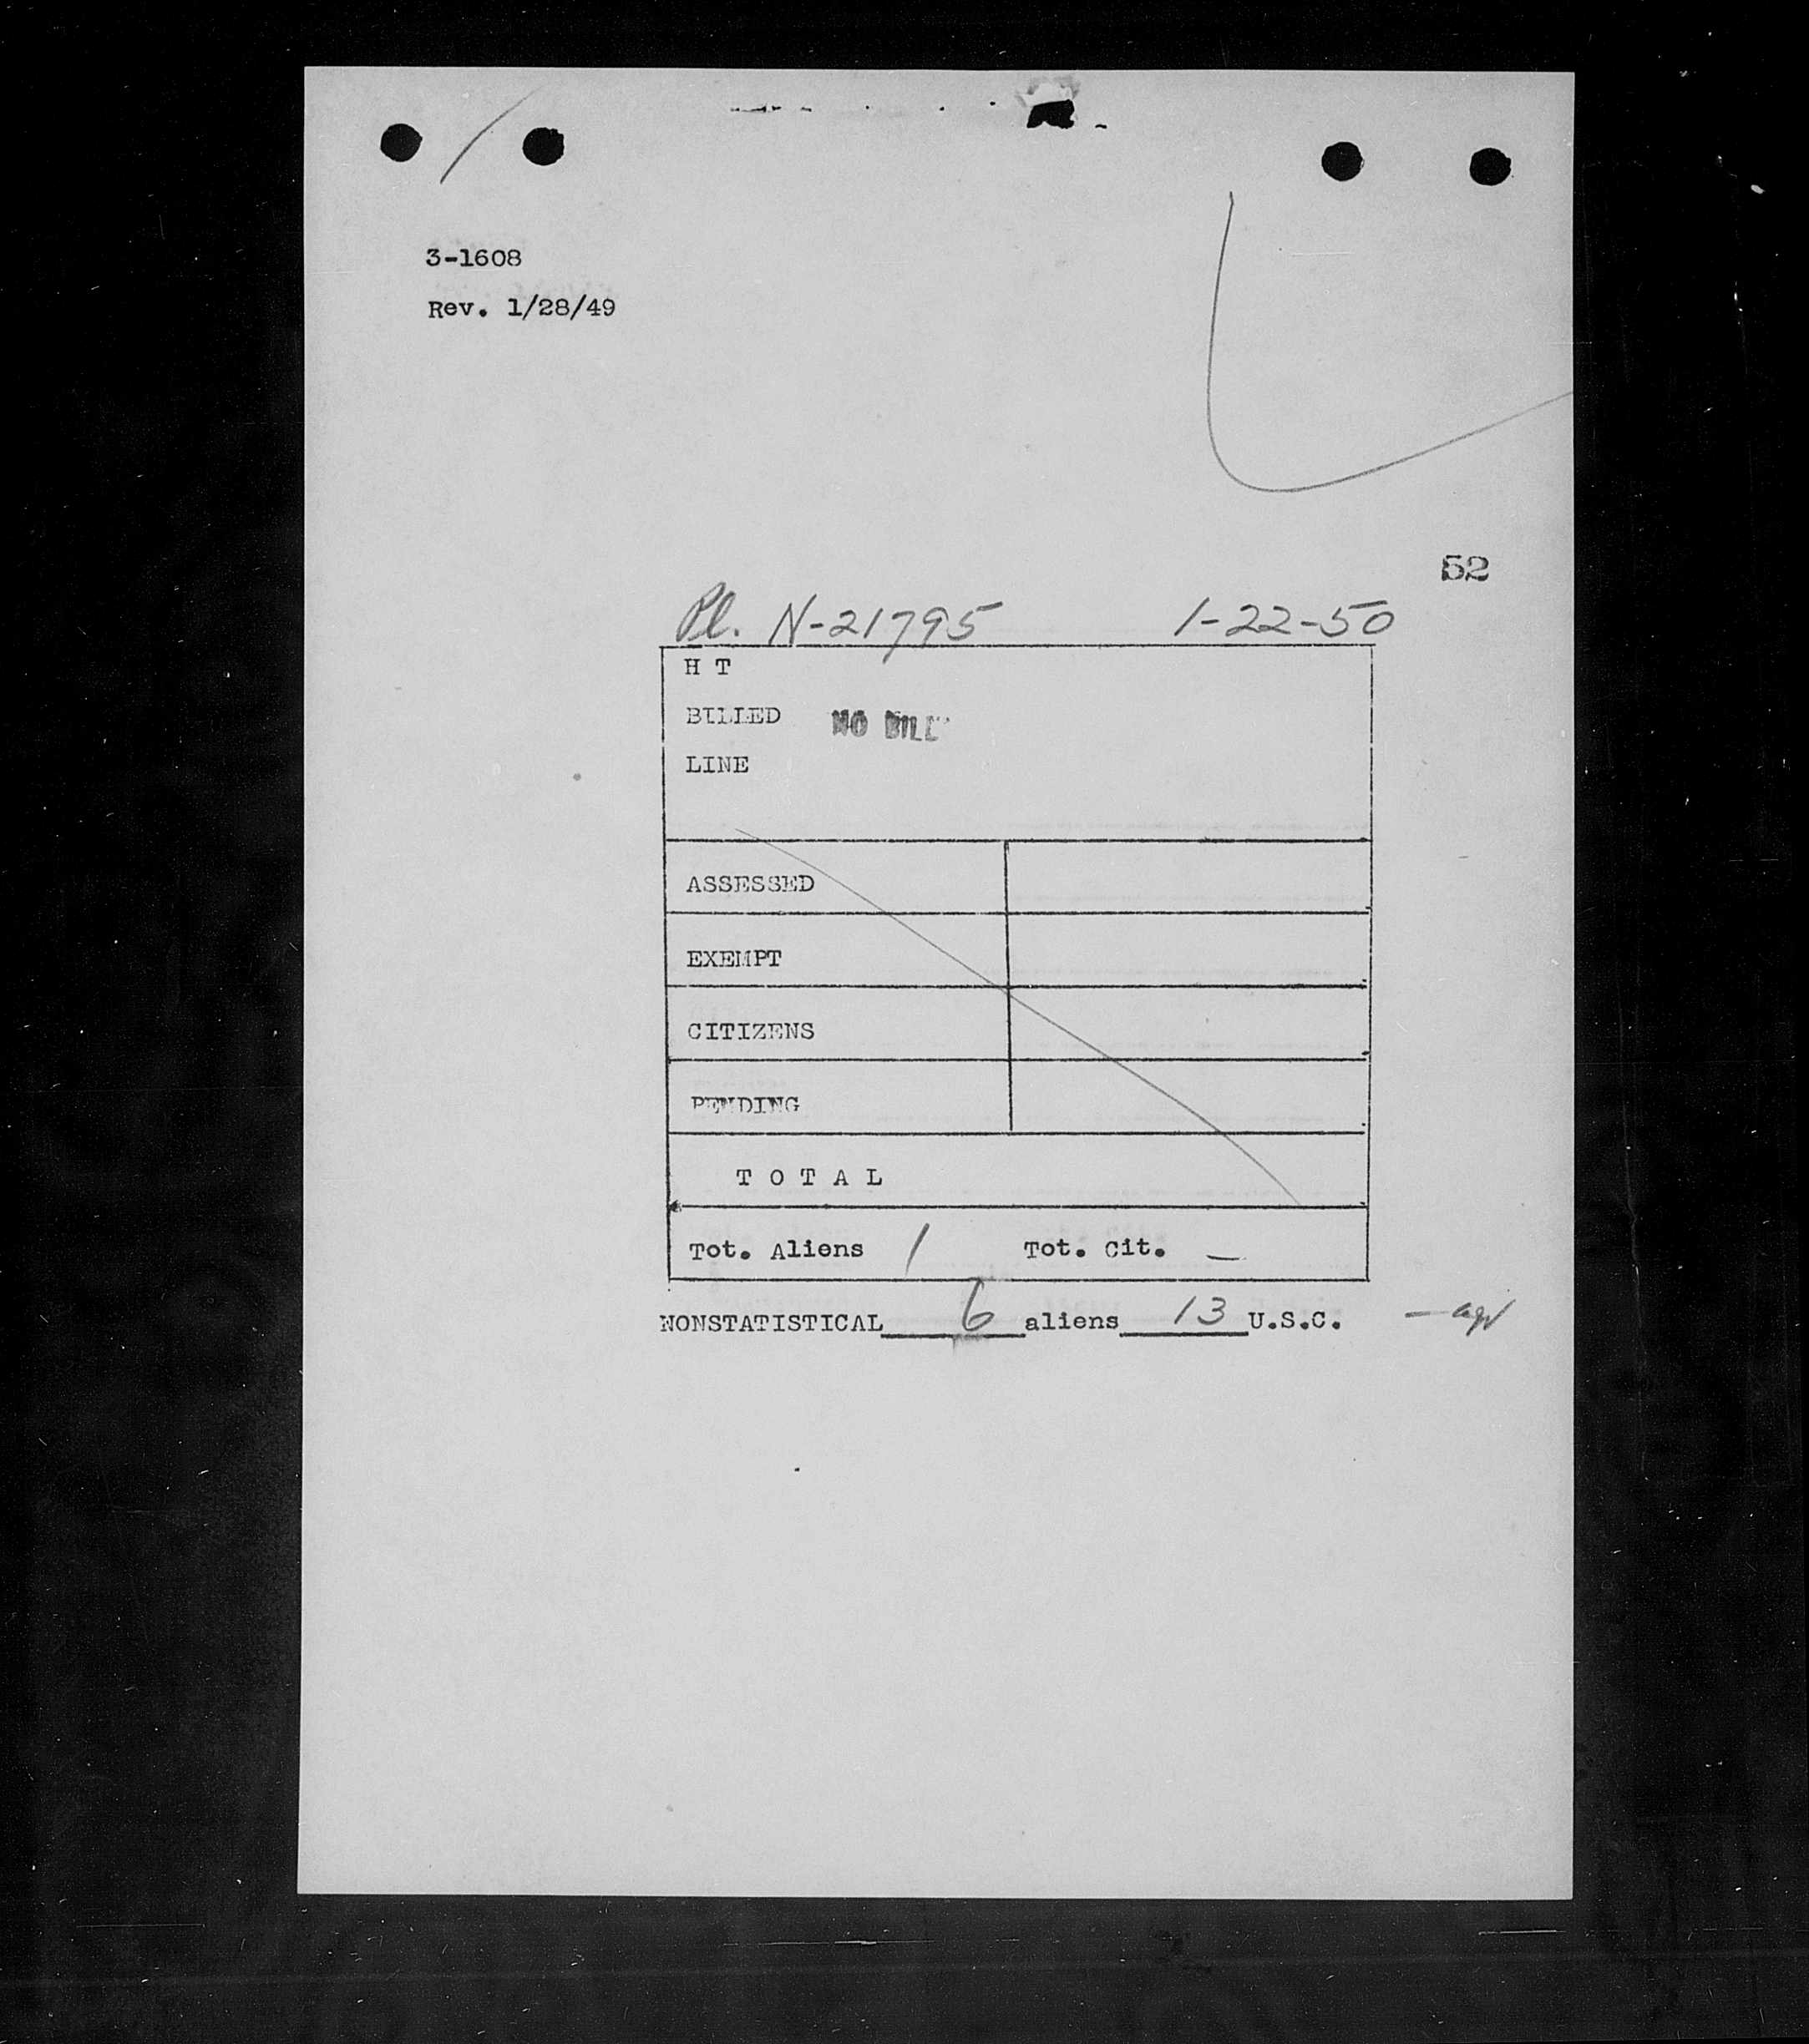 3-1608
Rev. 1/28/49
52
Pl. N-21795 1-22-50
H T
BILLED NO BILL
LINE
ASSESSED
EXEMPT
CITIZENS
PENDING
T O T A L
Tot. Aliens 1 Tot. Cit. —
NONSTATISTICAL 6 aliens 13 U.S.C.